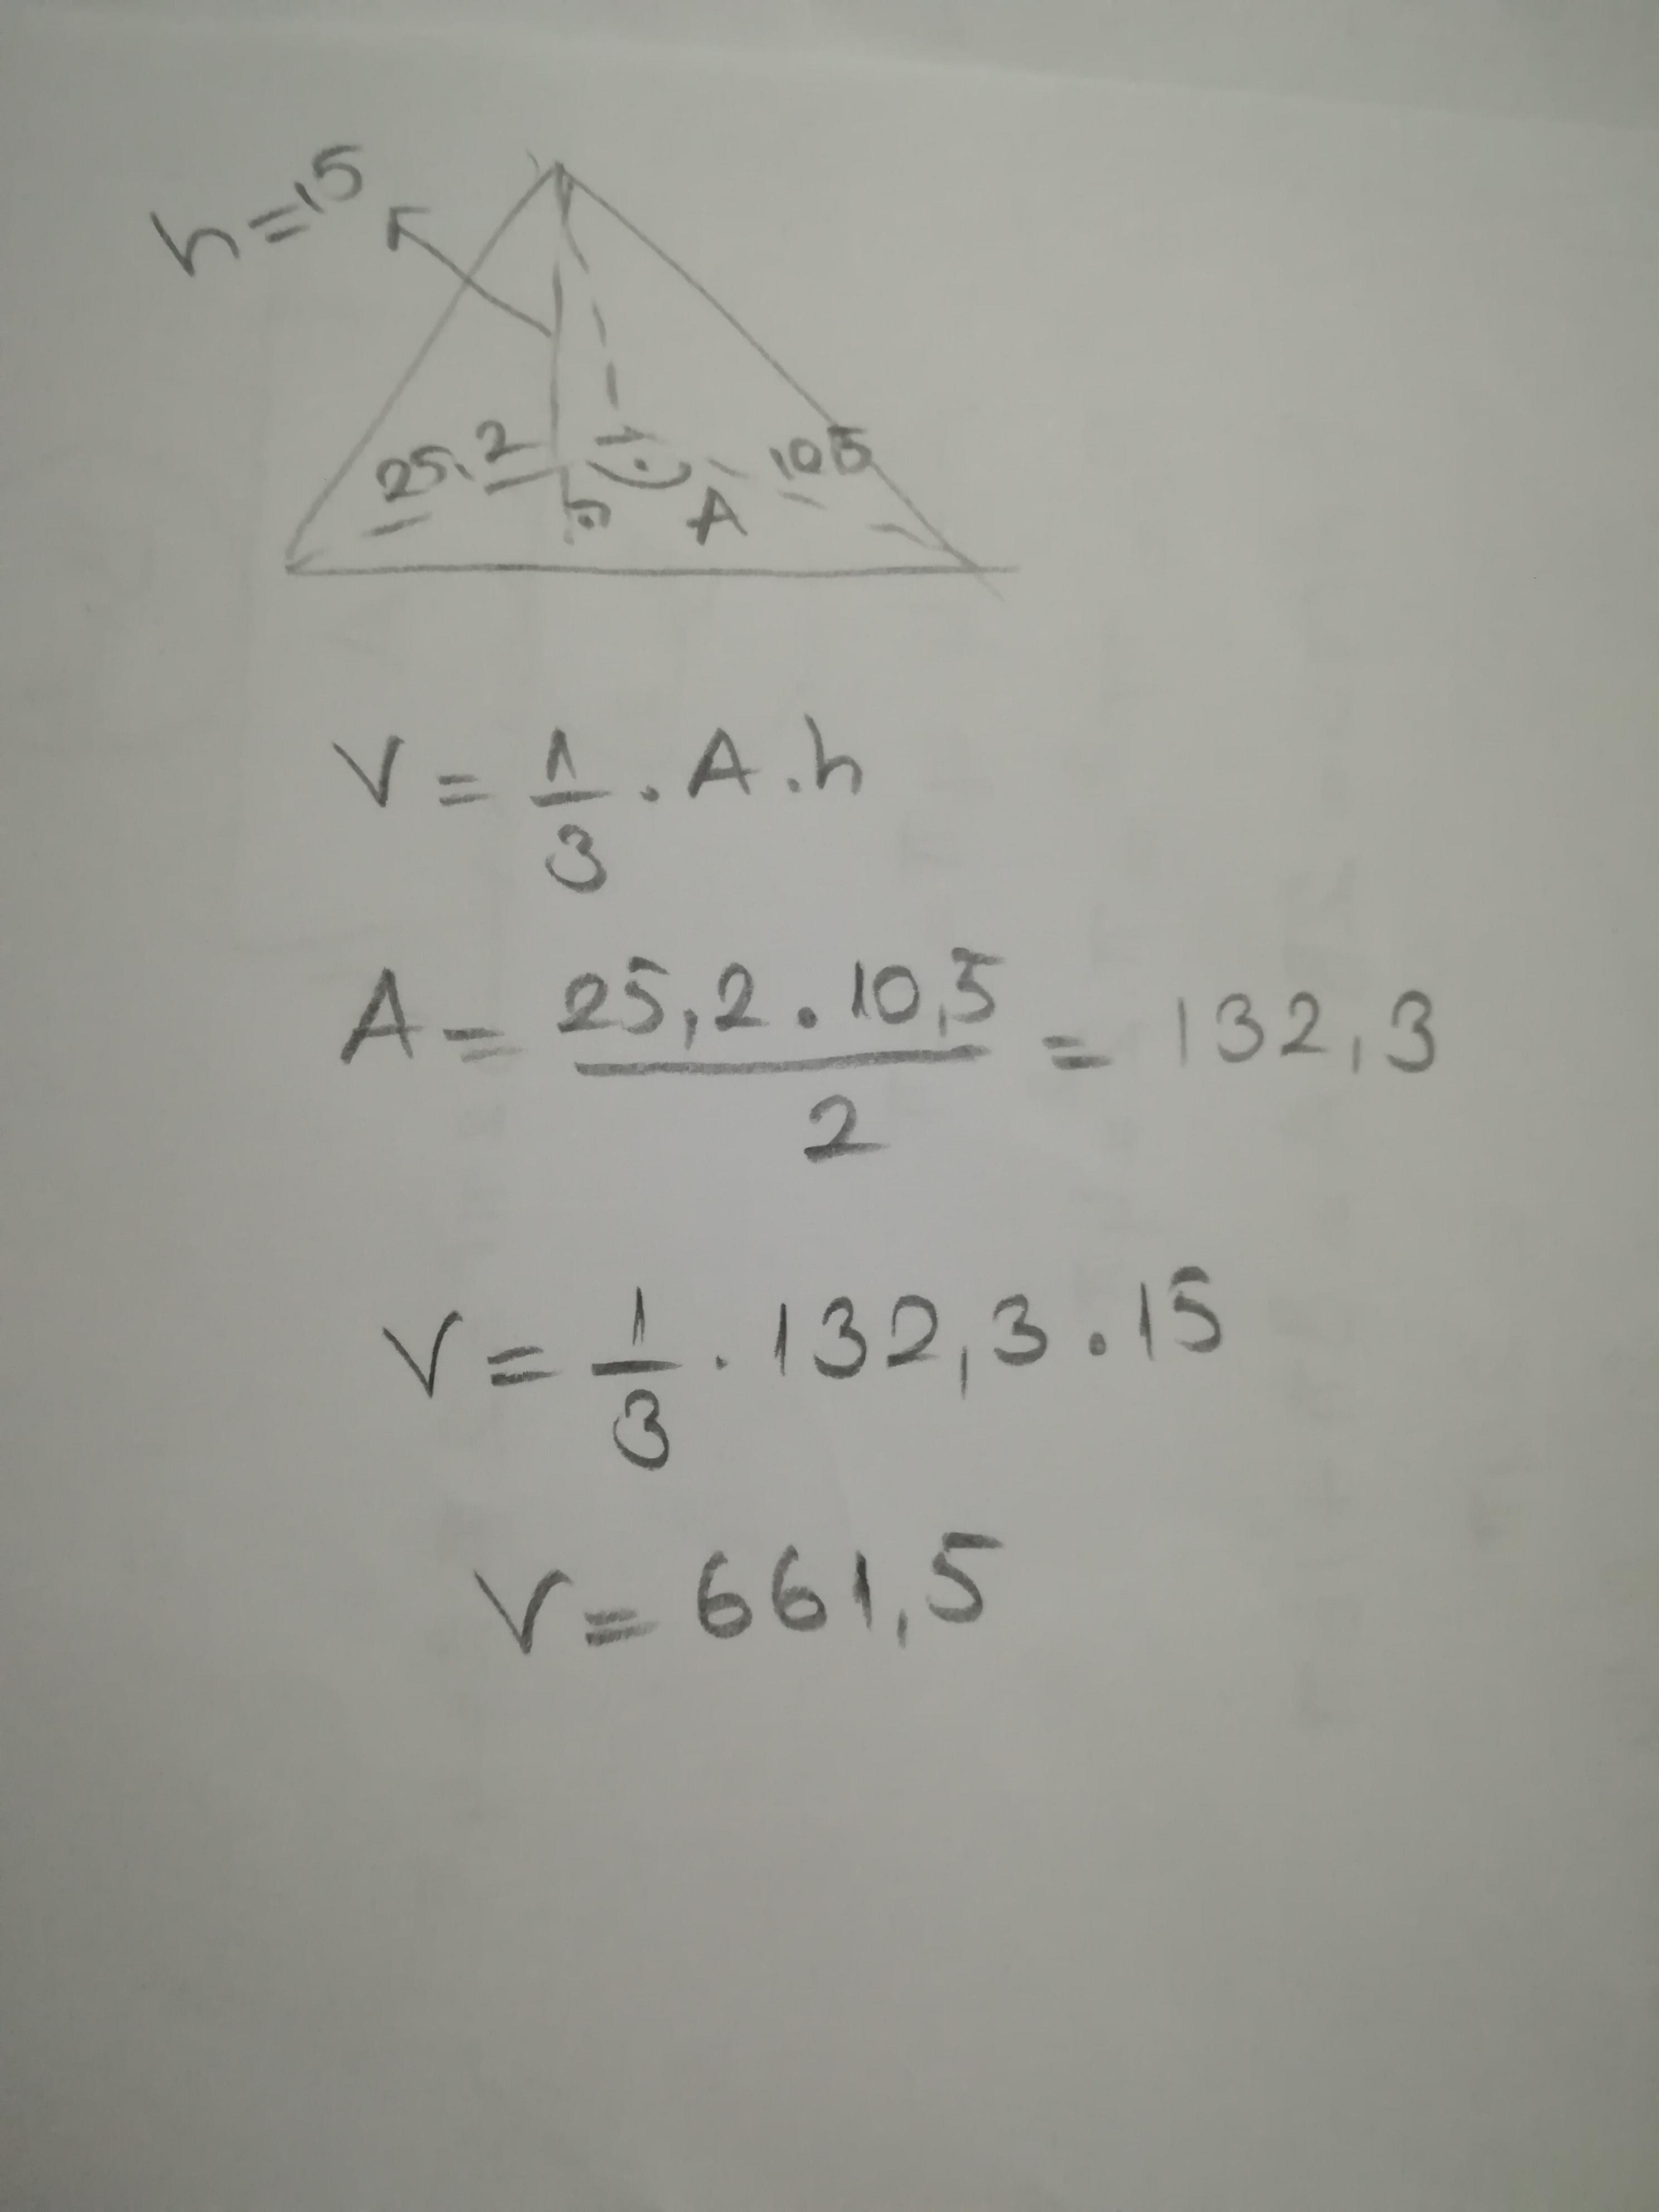 h=15
25,2
10,5
A
V = 1/3 . A . h
A = 25,2 . 10,5 / 2 = 132,3
V = 1/3 . 132,3 . 15
V = 661,5